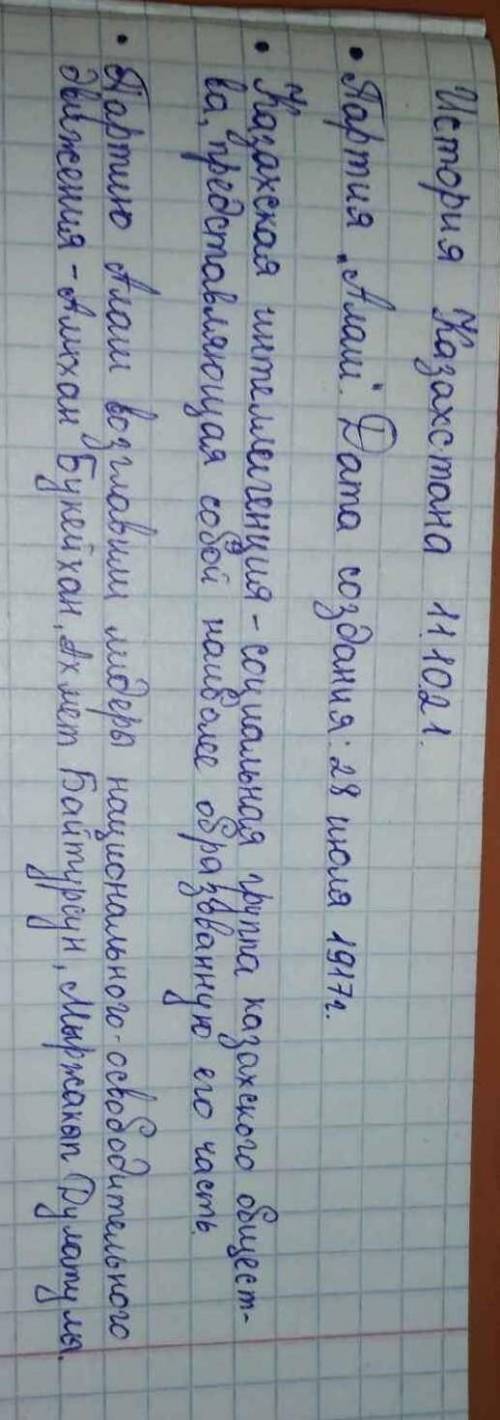 История Казахстана 11.10.21.
• Партия "Алаш". Дата создания: 28 июля 1917г.
• Казахская интеллегенция - социальная группа казахского общест-
ва, представляющая собой наиболее образованную его часть.
• Партию Алаш возглавили лидеры национального-освободительного
движения - Алихан Букейхан, Ахмет Байтурсун, Мыржакып Дулатулы.